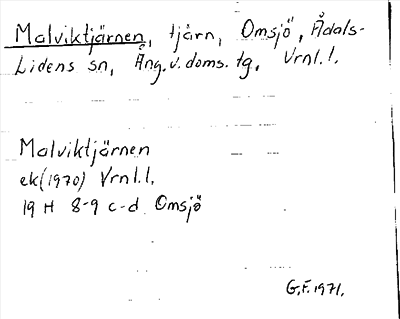 Malviktjärnen, tjärn, Omsjö, Ådals-
Lidens sn, Ång.v.doms.tg. Vrnl.l.
Malviktjärnen
ek(1970) Vrnl.l.
19 H 8-9 c-d Omsjö
G.F. 1971.